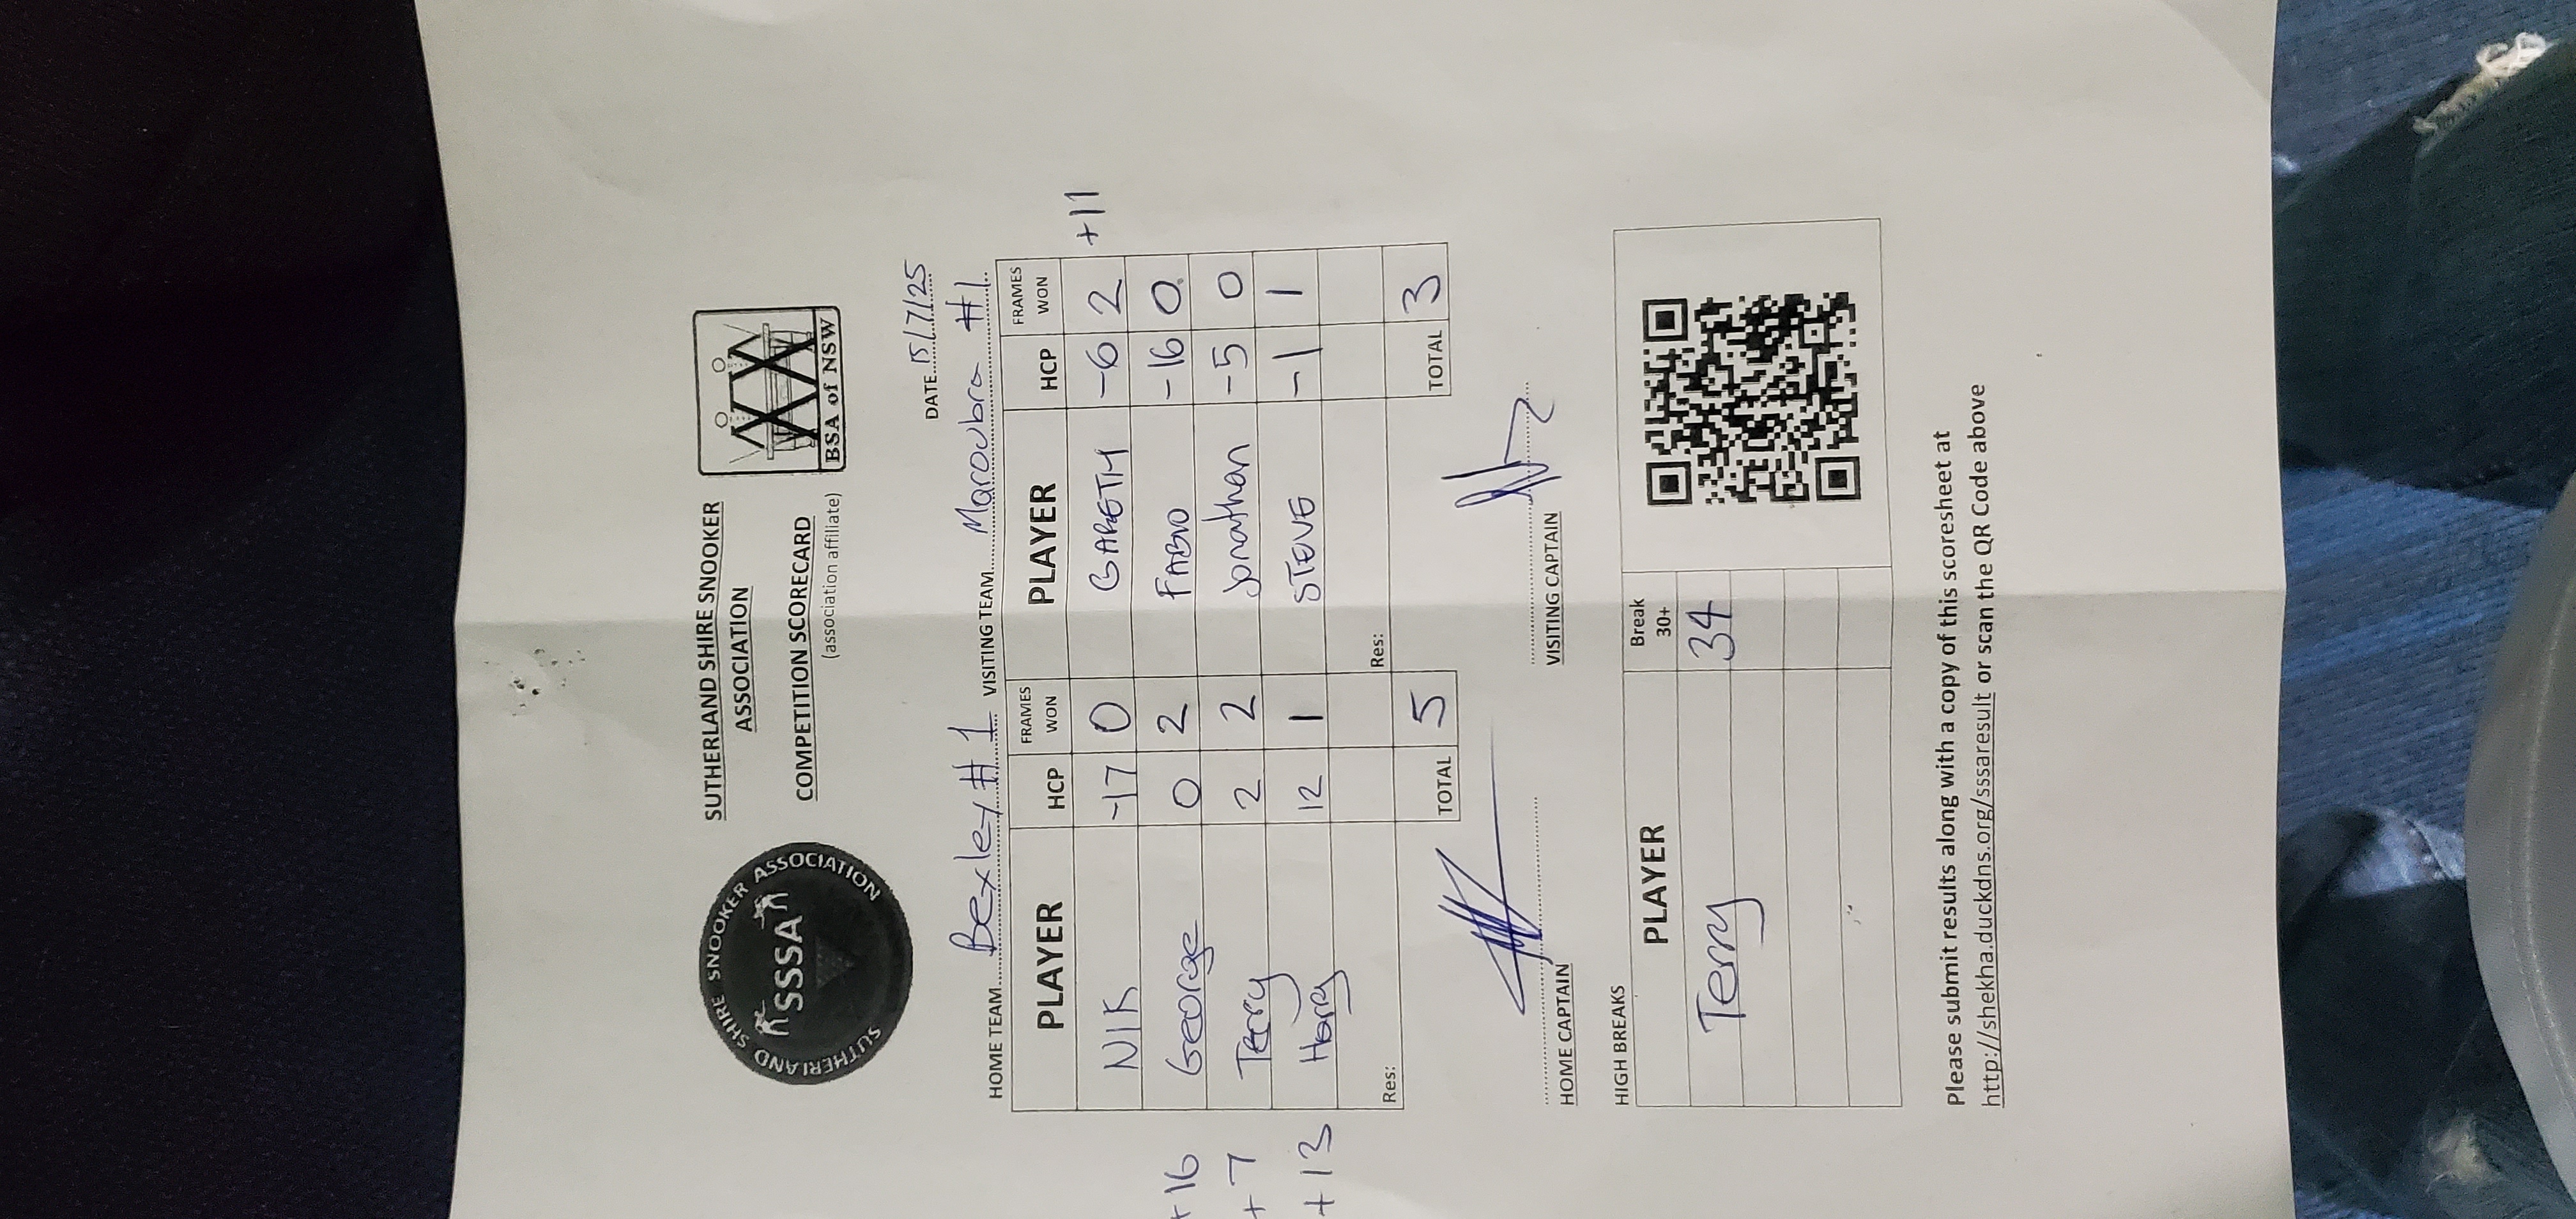 SUTHERLAND SHIRE SNOOKER ASSOCIATION
SSSA
SUTHERLAND SHIRE SNOOKER
ASSOCIATION
COMPETITION SCORECARD
(association affiliate)
BSA of NSW
DATE 15/7/25
HOME TEAM Bexley # 1 VISITING TEAM Maroubra #1
PLAYER HCP FRAMES WON PLAYER HCP FRAMES WON
NIK -17 0 GARETH -6 2 +11
+16 George 0 2 FABIO -16 0
+7 Terry 2 2 Jonathan -5 0
+13 Harry 12 1 STEVE -1 1
Res: Res:
TOTAL 5 TOTAL 3
HOME CAPTAIN VISITING CAPTAIN
HIGH BREAKS
PLAYER Break 30+
Terry 34
Please submit results along with a copy of this scoresheet at
http://shekha.duckdns.org/sssaresult or scan the QR Code above